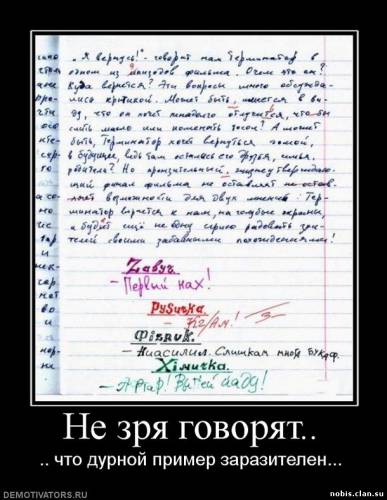 „Я вернусь!"- говорит нам Терминатор в
одном из эпизодов фильма. О чем это он?
Куда вернется? Эти вопросы много обсужда-
лись критикой. Может быть, имеется в ви-
ду, что он хочет ненадолго отлучится, что-бы
смыть мыло или поменять носки? А может
быть, Терминатор хочет вернуться домой,
в будущее, ведь там остались его друзья,
родители? Но пронзительный,
щий финал фильма не оставляет не остав-
ляет возможности для двух мнений. Тер-
минатор вернется к нам, на голубые экраны,
и будет ещё не одну серию радовать зри-
телей своими забавными похождениями!
Zавуч.
- Первый нах!
РуSичка.
- КГ/АМ! 3-
ФiзRUK.
- Ниасилил. Слишкам многа букаф.
Xiмичка.
- Афтар! Выпей йаду!
Не зря говорят..
.. что дурной пример заразителен...
DEMOTIVATORS.RU
nobis.clan.su